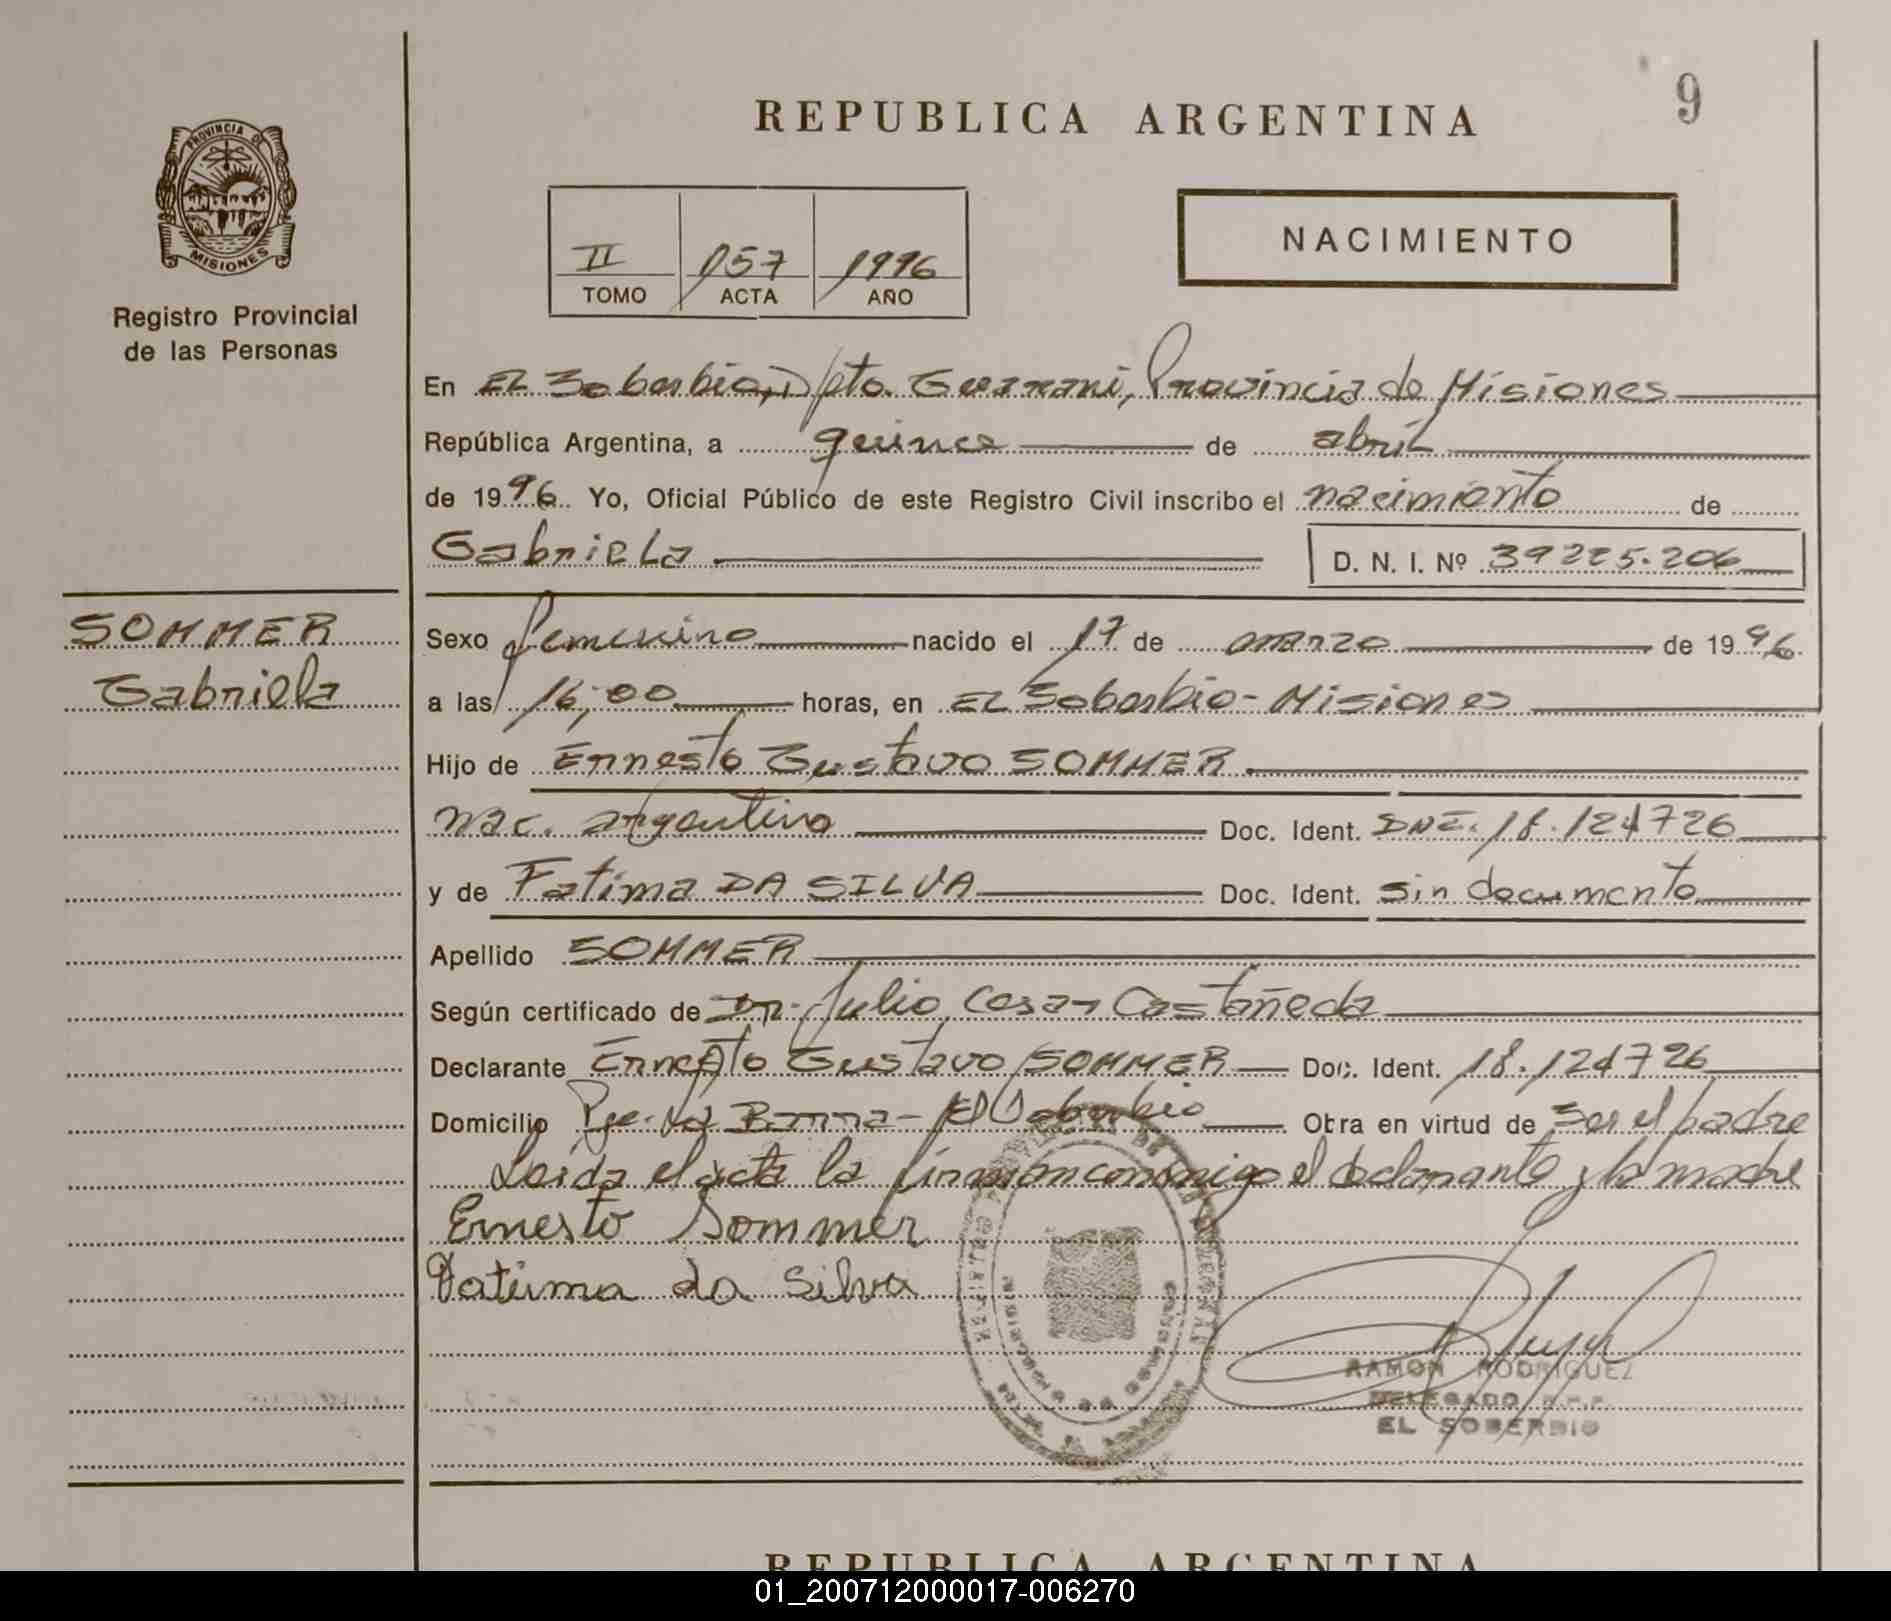 9
REPUBLICA ARGENTINA
PROVINCIA DE
MISIONES
Registro Provincial
de las Personas
II 157 1996
TOMO ACTA AÑO
NACIMIENTO
En EL Soberbio, Dpto. Guarani, Provincia de Misiones
República Argentina, a quince de abril
de 1996 Yo, Oficial Público de este Registro Civil inscribo el nacimiento de
Gabriela D. N. I. Nº 39225.206
SOMMER
Gabriela
Sexo femenino nacido el 17 de marzo de 1996
a las 16,00 horas, en EL Soberbio - Misiones
Hijo de Ernesto Gustavo SOMMER
nac. argentino Doc. Ident. DNI. 18.124726
y de Fatima DA SILVA Doc. Ident. sin documento
Apellido SOMMER
Según certificado de Dr. Julio Cesar Castañeda
Declarante Ernesto Gustavo SOMMER Doc. Ident. 18.124726
Domicilio El Soberbio Obra en virtud de ser el padre
Leida el acta la firman conmigo el declarante y la madre
Ernesto Sommer
Fatima da Silva
RAMON RODRIGUEZ
DELEGADO R.P.P.
EL SOBERBIO
REPUBLICA ARGENTINA
01_200712000017-006270